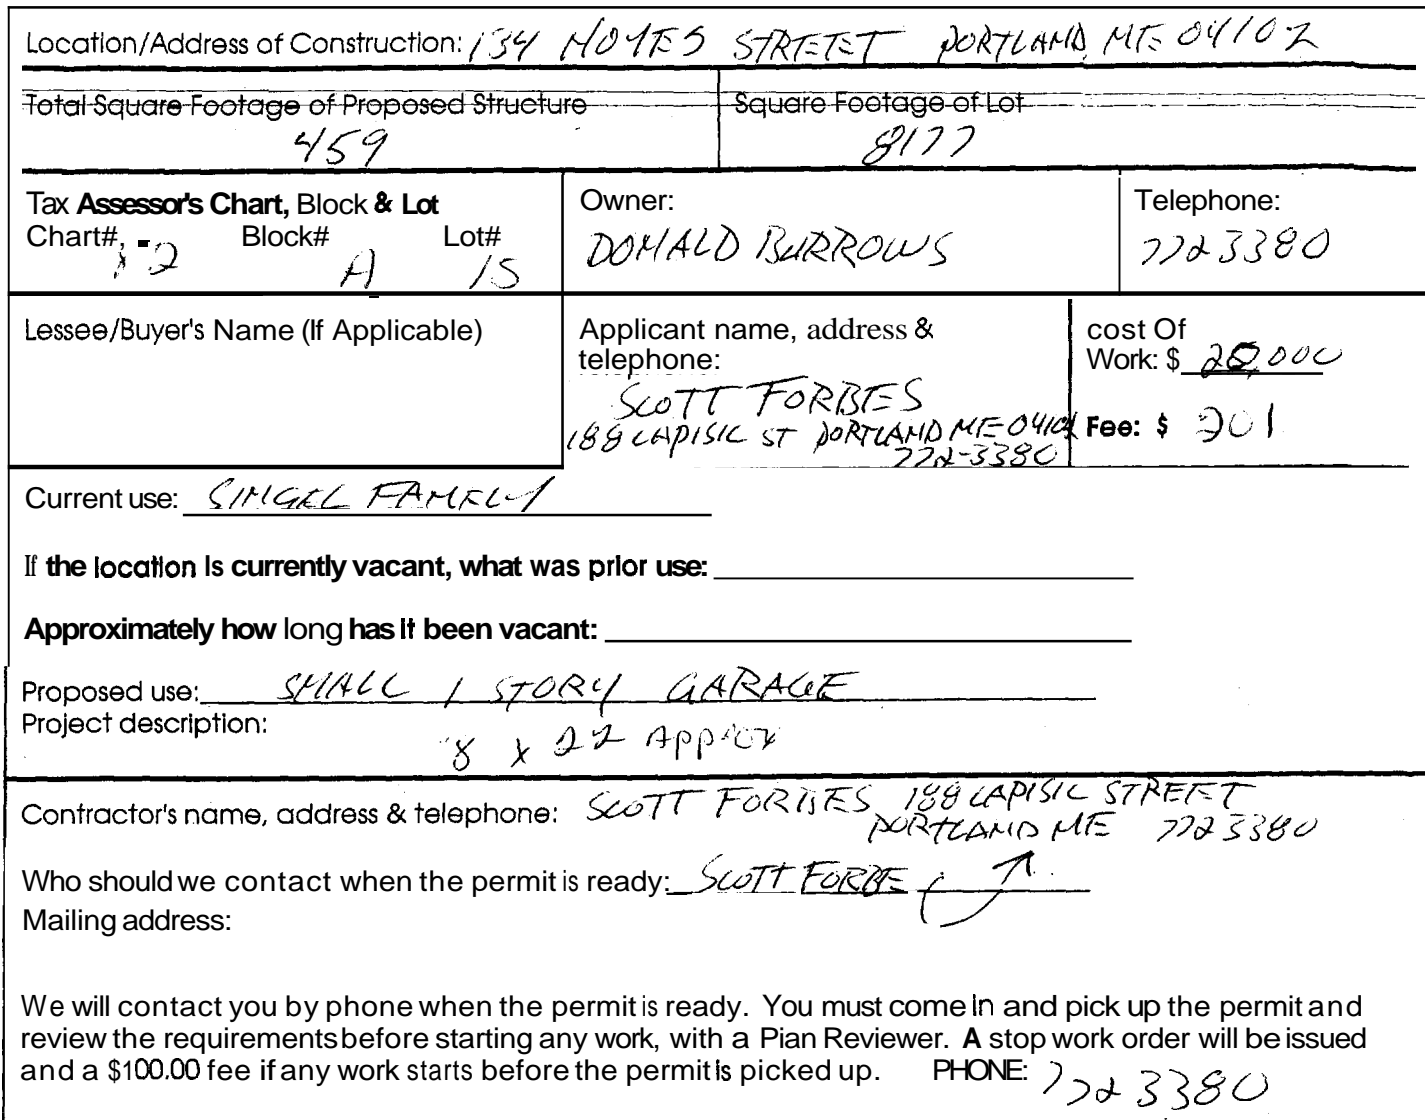 Location/Address of Construction: 134 NOYES STREET PORTLAND, ME 04102
Total Square Footage of Proposed Structure Square Footage of Lot
459 8177
Tax Assessor's Chart, Block & Lot Owner: Telephone:
Chart# Block# Lot#
A 15 DONALD BURROWS 7723380
Lessee/Buyer's Name (If Applicable) Applicant name, address & cost Of
telephone: Work: $ 20,000
SCOTT FORBES
188 CAPISIC ST PORTLAND ME 04102 Fee: $ 201
772-3380
Current use: SINGEL FAMELY
If the location is currently vacant, what was prior use:
Approximately how long has it been vacant:
Proposed use: SMALL 1 STORY GARAGE
Project description:
8 x 22 Approx
Contractor's name, address & telephone: SCOTT FORBES 188 CAPISIC STREET
PORTLAND ME 7723380
Who should we contact when the permit is ready: SCOTT FORBE
Mailing address:
We will contact you by phone when the permit is ready. You must come in and pick up the permit and
review the requirements before starting any work, with a Pian Reviewer. A stop work order will be issued
and a $100.00 fee if any work starts before the permit is picked up. PHONE: 7723380